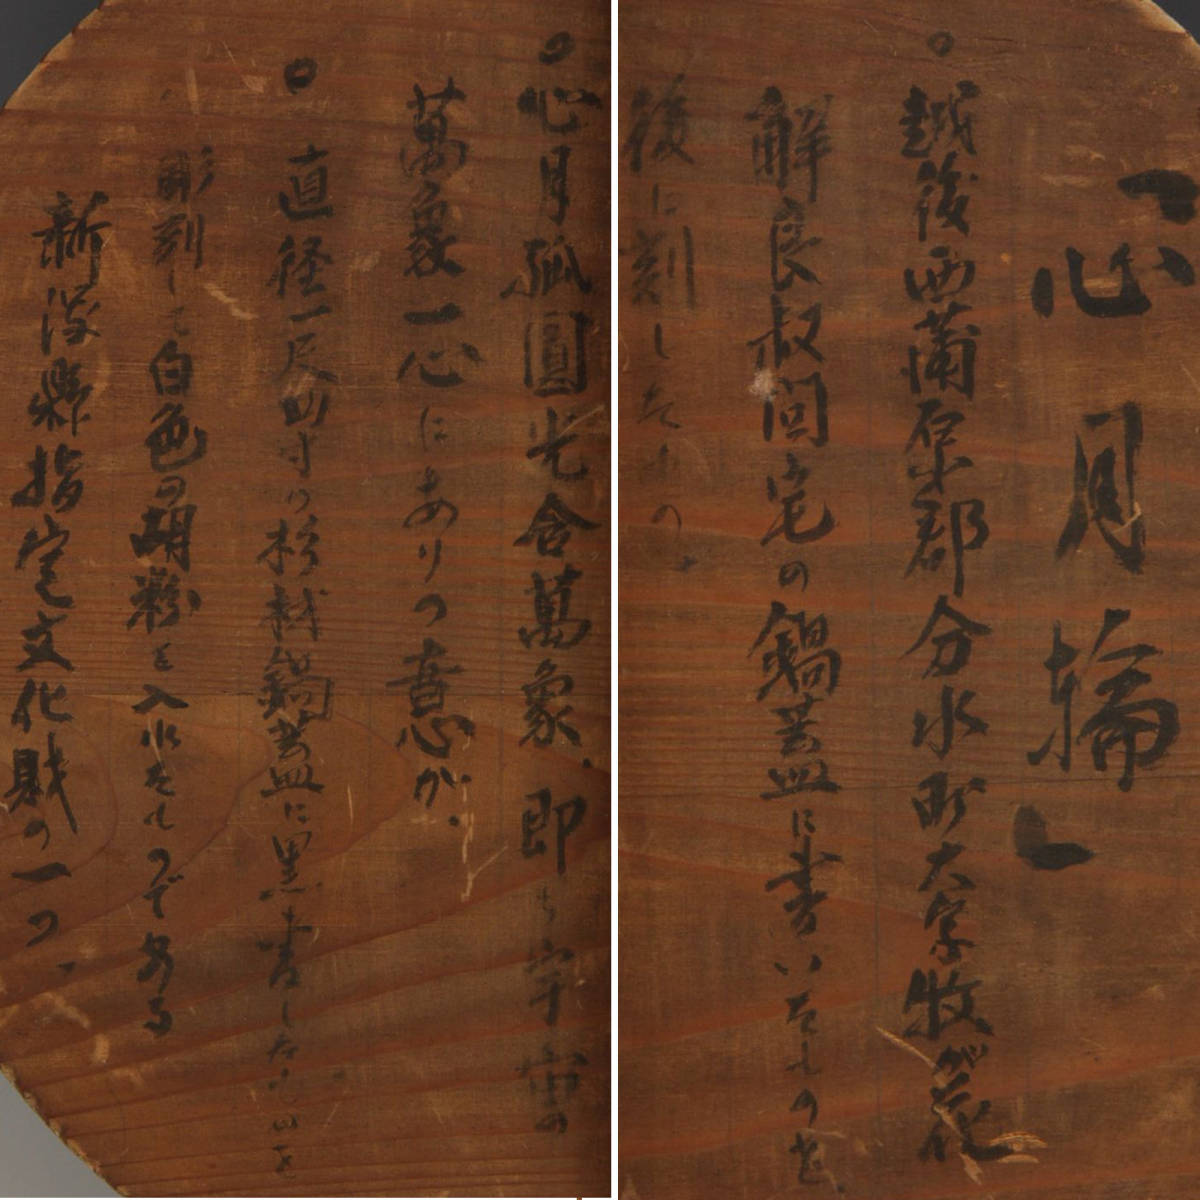 「心月輪」
○越後西蒲原郡分水町大字牧が花
解良叔問宅の鍋蓋に書いたものを、
後に刻したもの、
○心月孤圓光含萬象、即ち宇宙の
萬象一心にありの意心が、
○直径一尺四寸の杉材鍋蓋に黒書したものを
彫刻して白色の胡粉を入れたものである
新潟縣指定文化財の一つ、